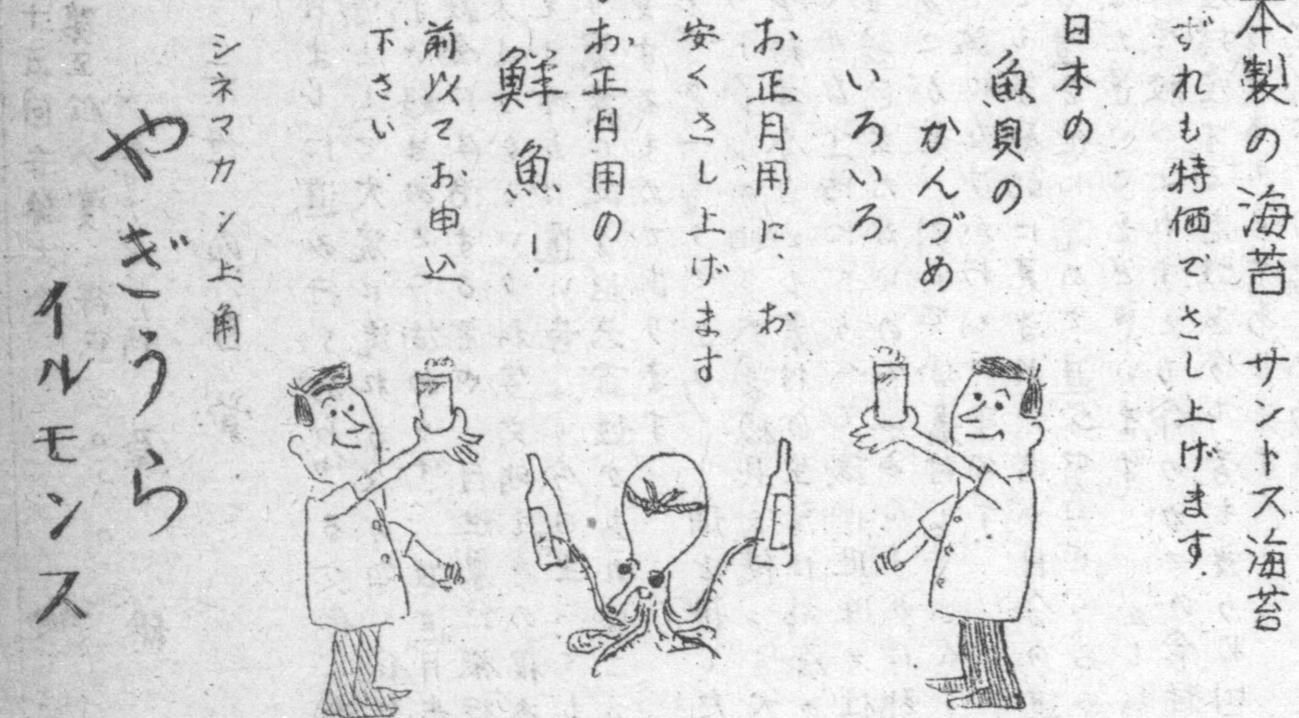 本製の海苔 サントス海苔
ずれも特価でさし上げます.
日本の
魚貝の
かんづめ
いろいろ
お正月用に、お
安くさし上げます
お正月用の
鮮魚!
前以てお申込
下さい.
シネマカン上角
やぎうら
イルモンス